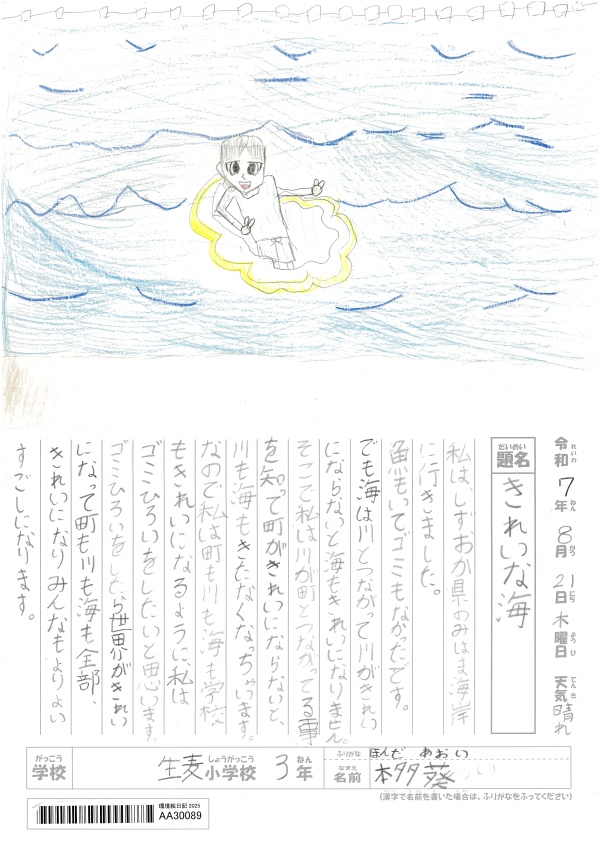 令和7年8月21日木曜日 天気晴れ
れいわ ねん がつ にち ようび てんき
だいめい
題名 きれいな海
私は、しずおか県のみはま海岸
に行きました。
魚もいてゴミもなかったです。
でも海は川とつながって川がきれい
にならないと海もきれいになりません。
そこで私は川が町とつながってる事
を知って町がきれいにならないと、
川も海もきたなくなっちゃいます。
なので私は町も川も海も学校
もきれいになるように、私は
ゴミひろいをしたいと思います。
ゴミひろいをしたら世界がきれい
になって町も川も海も全部、
きれいになりみんなもよりよい
すごしになります。
がっこう しょうがっこう ねん
学校 生麦小学校 3年
ふりがな ほんだ あおい
なまえ
名前 本多葵
(漢字で名前を書いた場合は、ふりがなをふってください)
環境絵日記 2025
AA30089